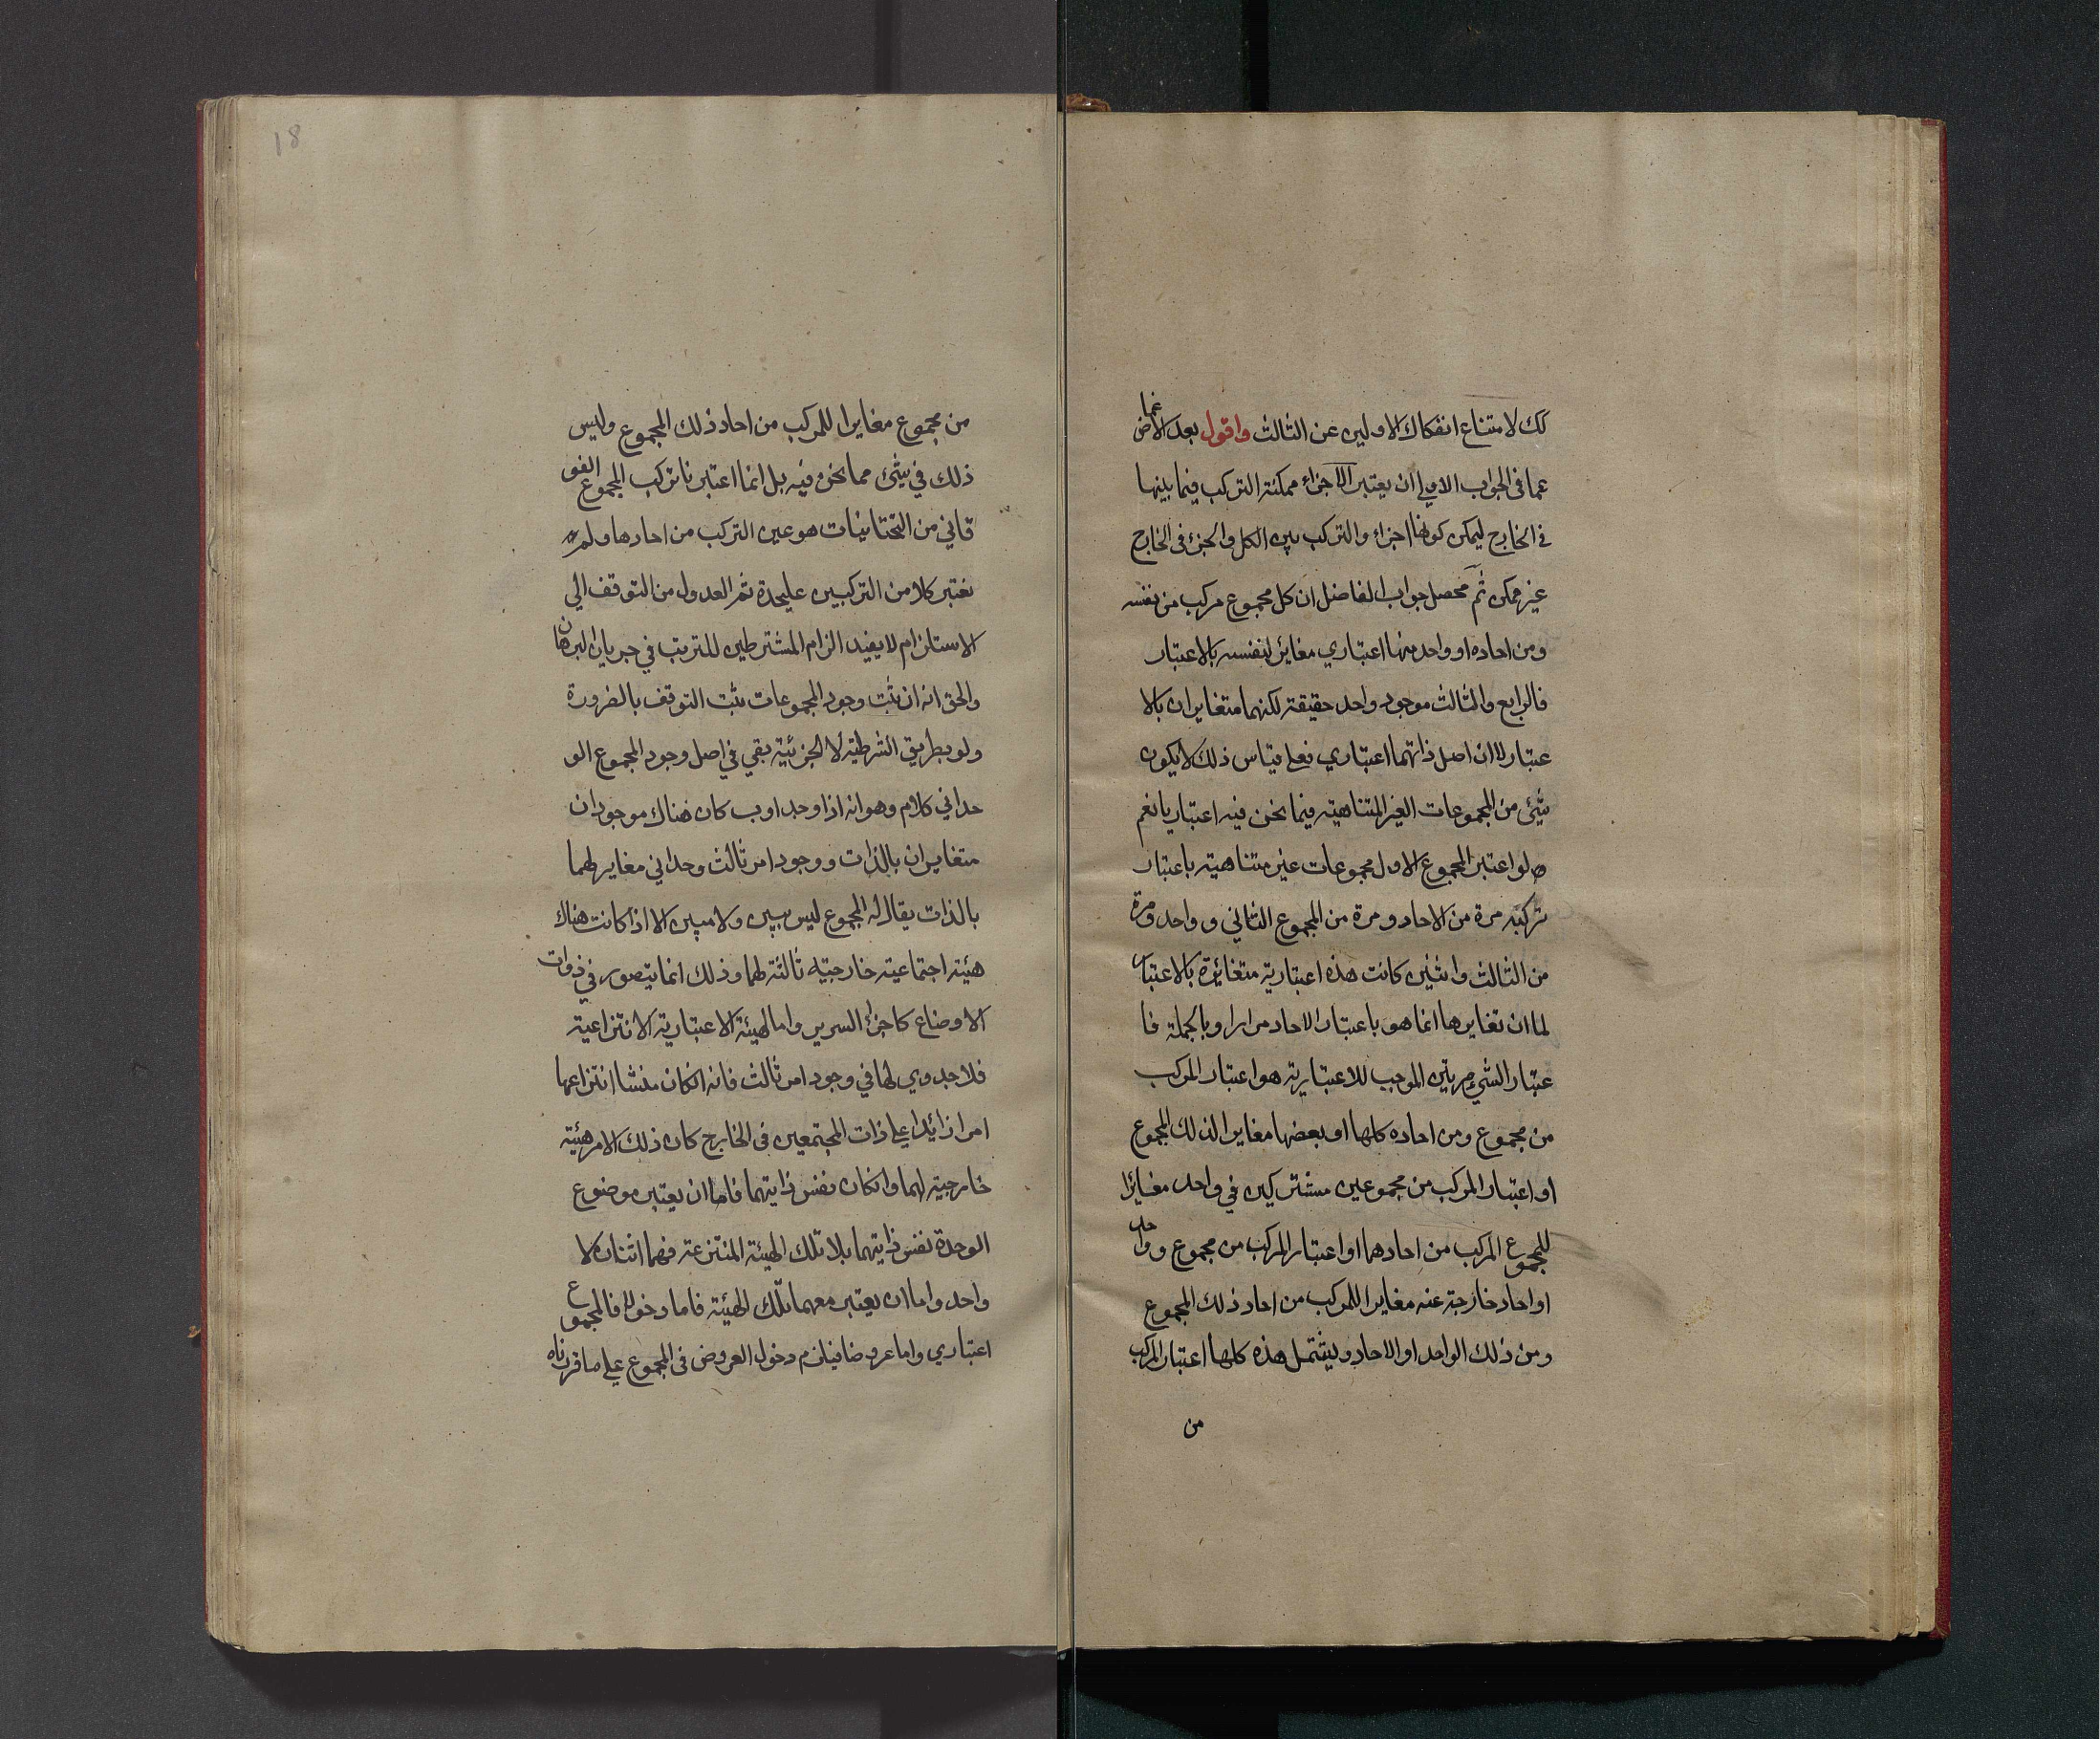 لك لامتناع انفكاك الاولين عن الثالث واقول بعد الاغماض
عما فى الجواب الاول ان يعتبر الاجزاء ممكنة التركب فيما بينها
فى الخارج ليمكن كونها اجزاء والتركب بين الكل والجزء فى الخارج
غير ممكن ثم محصل جواب الفاضل ان كل مجموع مركب من نفسه
ومن احاده او واحد منها اعتباري مغائر لنفسه بالاعتبار
فالرابع والثالث موجود واحد حقيقة لكنهما متغايران بالا
عتبار لا ان اصل ذاتهما اعتباري فعلى قياس ذلك لا يكون
شئ من المجموعات الغير المتناهية فيما نحن فيه اعتباريا نعم
لو اعتبر المجموع الاول مجموعات غير متناهية باعتبار
تركبه مرة من الاحاد ومرة من المجموع الثاني و واحد ومرة
من الثالث واثنين كانت هذه اعتبارية متغائرة بالاعتبار
لما ان تغايرها انما هو باعتبار الاحاد مرارا وبالجملة فا
عتبار الشيء مرتين الموجب للاعتبارية هو اعتبار المركب
من مجموع ومن احاده كلها او بعضها مغايرا لذلك المجموع
او اعتبار المركب من مجموعين مشتركين في واحد مغائرا
للمجموع المركب من احادهما او اعتبار المركب من مجموع و واحد
او احاد خارجة عنه مغايرا للمركب من احاد ذلك المجموع
ومن ذلك الواحد او الاحاد ويشتمل هذه كلها اعتبار المركب
من
18
من مجموع مغايرا للمركب من احاد ذلك المجموع وليس
ذلك في شئ مما نحن فيه بل انما اعتبرنا تركب المجموع الفو
قاني من التحتانيات هو عين التركب من احادها ولم
نعتبر كلا من التركبين عليحدة ثم العدول من التوقف الى
الاستلزام لا يفيد الزام المشترطين للترتب في جريان البرهان
والحق انه ان ثبت وجود المجموعات ثبت التوقف بالضرورة
ولو بطريق الشرطية لا الجزئية بقي في اصل وجود المجموع الو
حداني كلام وهو انه اذا وجد ا و ب كان هناك موجودان
متغايران بالذات ووجود امر ثالث وحداني مغاير لهما
بالذات يقال له المجموع ليس ببين ولا مبين الا اذا كانت هناك
هيئة اجتماعية خارجية ثالثة لهما وذلك انما يتصور في ذوات
الاوضاع كاجزاء السرير واما الهيئة الاعتبارية الانتزاعية
فلا جدوي لها في وجود امر ثالث فانه الكان منشا انتزاعها
امرا زائدا على ذات المجتمعين فى الخارج كان ذلك الامر هيئة
خارجية لهما وانكان نفس ذاتيهما فاما ان يعتبر موضوع
الوحدة نفس ذاتيهما بلا تلك الهيئة المنتزعة فهما اثنان لا
واحد واما ان يعتبر معهما تلك الهيئة فاما دخولا فالمجموع
اعتباري واما عروضا فيلزم دخول العروض فى المجموع على ما قررناه